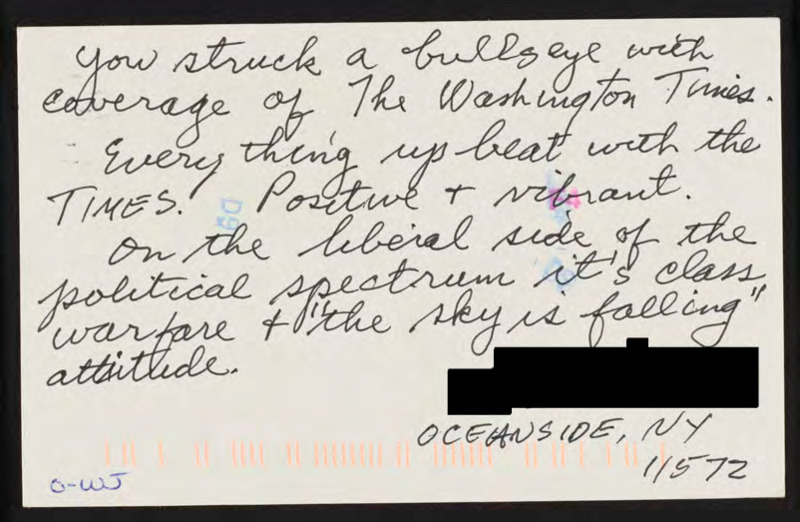 You struck a bullseye with
coverage of The Washington Times.
Everything upbeat with the
TIMES. Positive + vibrant.
On the liberal side of the
political spectrum it's class
warfare + "the sky is falling"
attitude.
OCEANSIDE, NY
11572
O-WJ